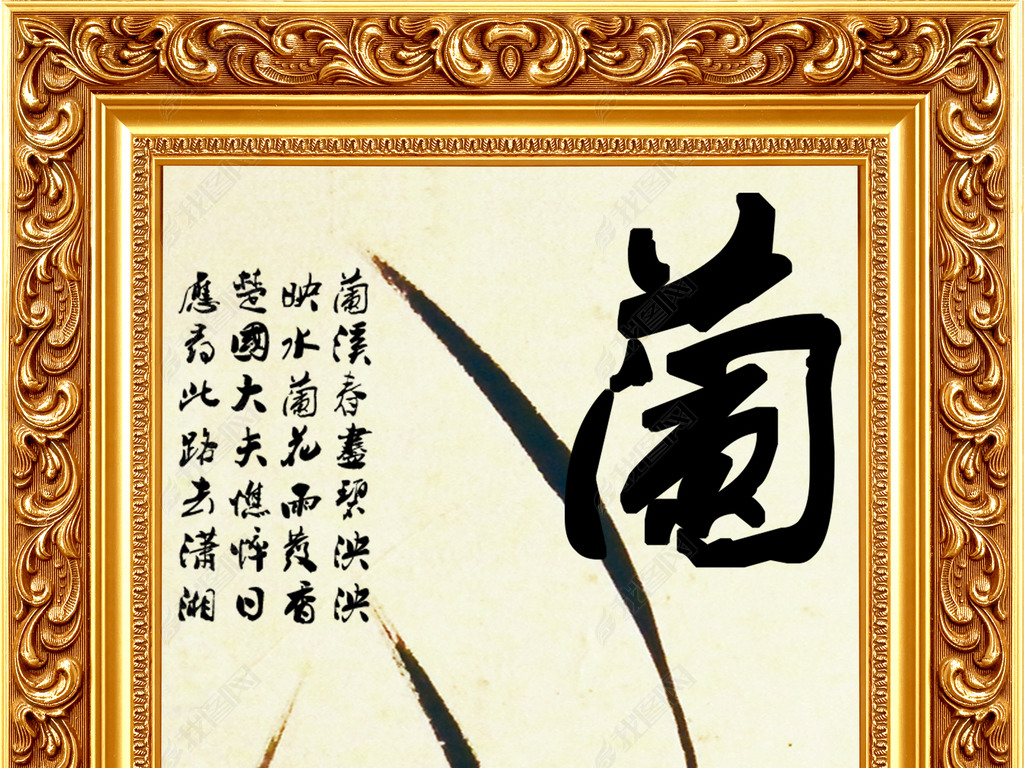 蘭
蘭溪春盡碧泱泱
映水蘭花雨發香
楚國大夫憔悴日
應尋此路去瀟湘